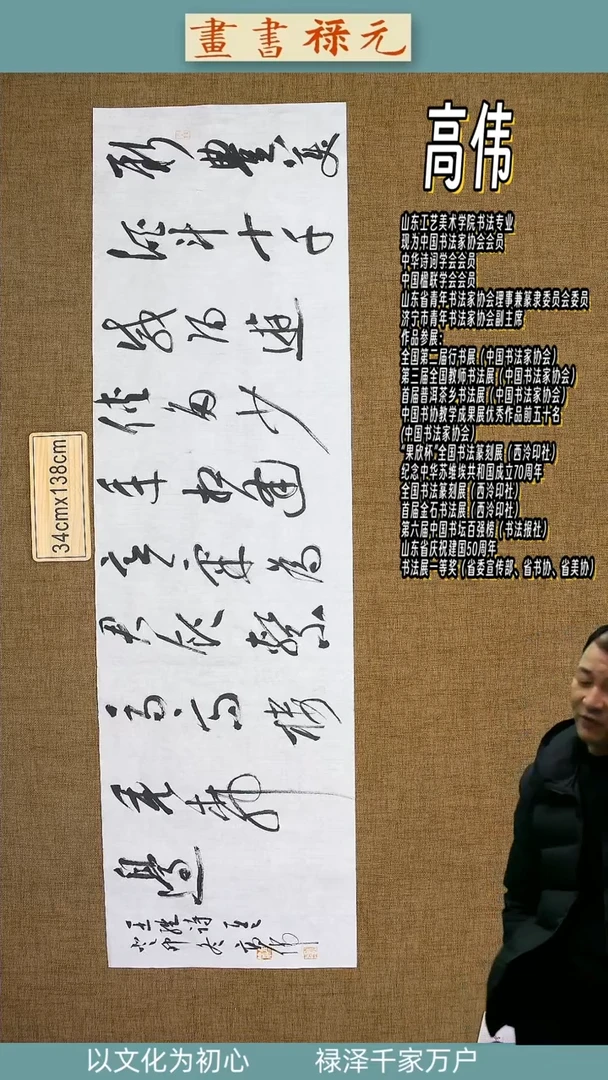 元禄書畫
高伟
山东工艺美术学院书法专业
现为中国书法家协会会员
中华诗词学会会员
中国楹联学会会员
山东省青年书法家协会理事兼篆隶委员会委员
济宁市青年书法家协会副主席
作品参展：
全国第二届行书展（中国书法家协会）
第三届全国教师书法展（中国书法家协会）
首届普洱茶乡书法展（中国书法家协会）
中国书协教学成果展优秀作品前五十名
(中国书法家协会)
“果欣杯”全国书法篆刻展（西泠印社）
纪念中华苏维埃共和国成立70周年
全国书法篆刻展（西泠印社）
首届金石书法展（西泠印社）
第六届中国书坛百强榜（书法报社）
山东省庆祝建国50周年
书法展一等奖（省委宣传部、省书协、省美协）
34cmx138cm
新豐美
酒斗十千
咸陽遊
俠多少
年相逢
意氣為
君飲繫
馬高樓
垂柳
邊
王維詩
癸卯冬高伟
以文化为初心 禄泽千家万户